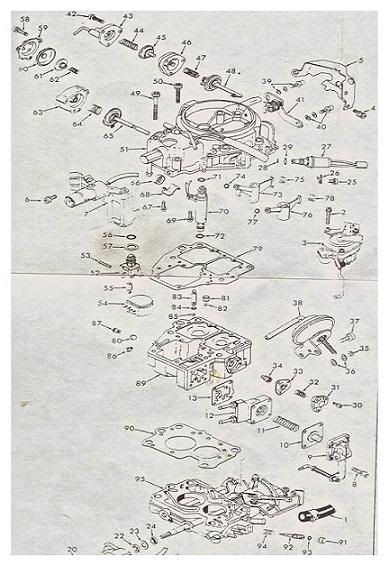 42
43
58
59
44
45
46
47
48
60
61
62
50
39
5
63
64
65
49
41
4
40
51
29
27
28
26
25
56
71
74
75
6
7
68
67
70
73
78
76
2
77
69
72
3
56
57
53
52
79
55
54
83
81
84
82
85
38
87
80
37
86
89
35
36
34
33
13
32
31
12
30
11
10
90
9
8
95
1
24
23
22
21
94
92
93
91
20